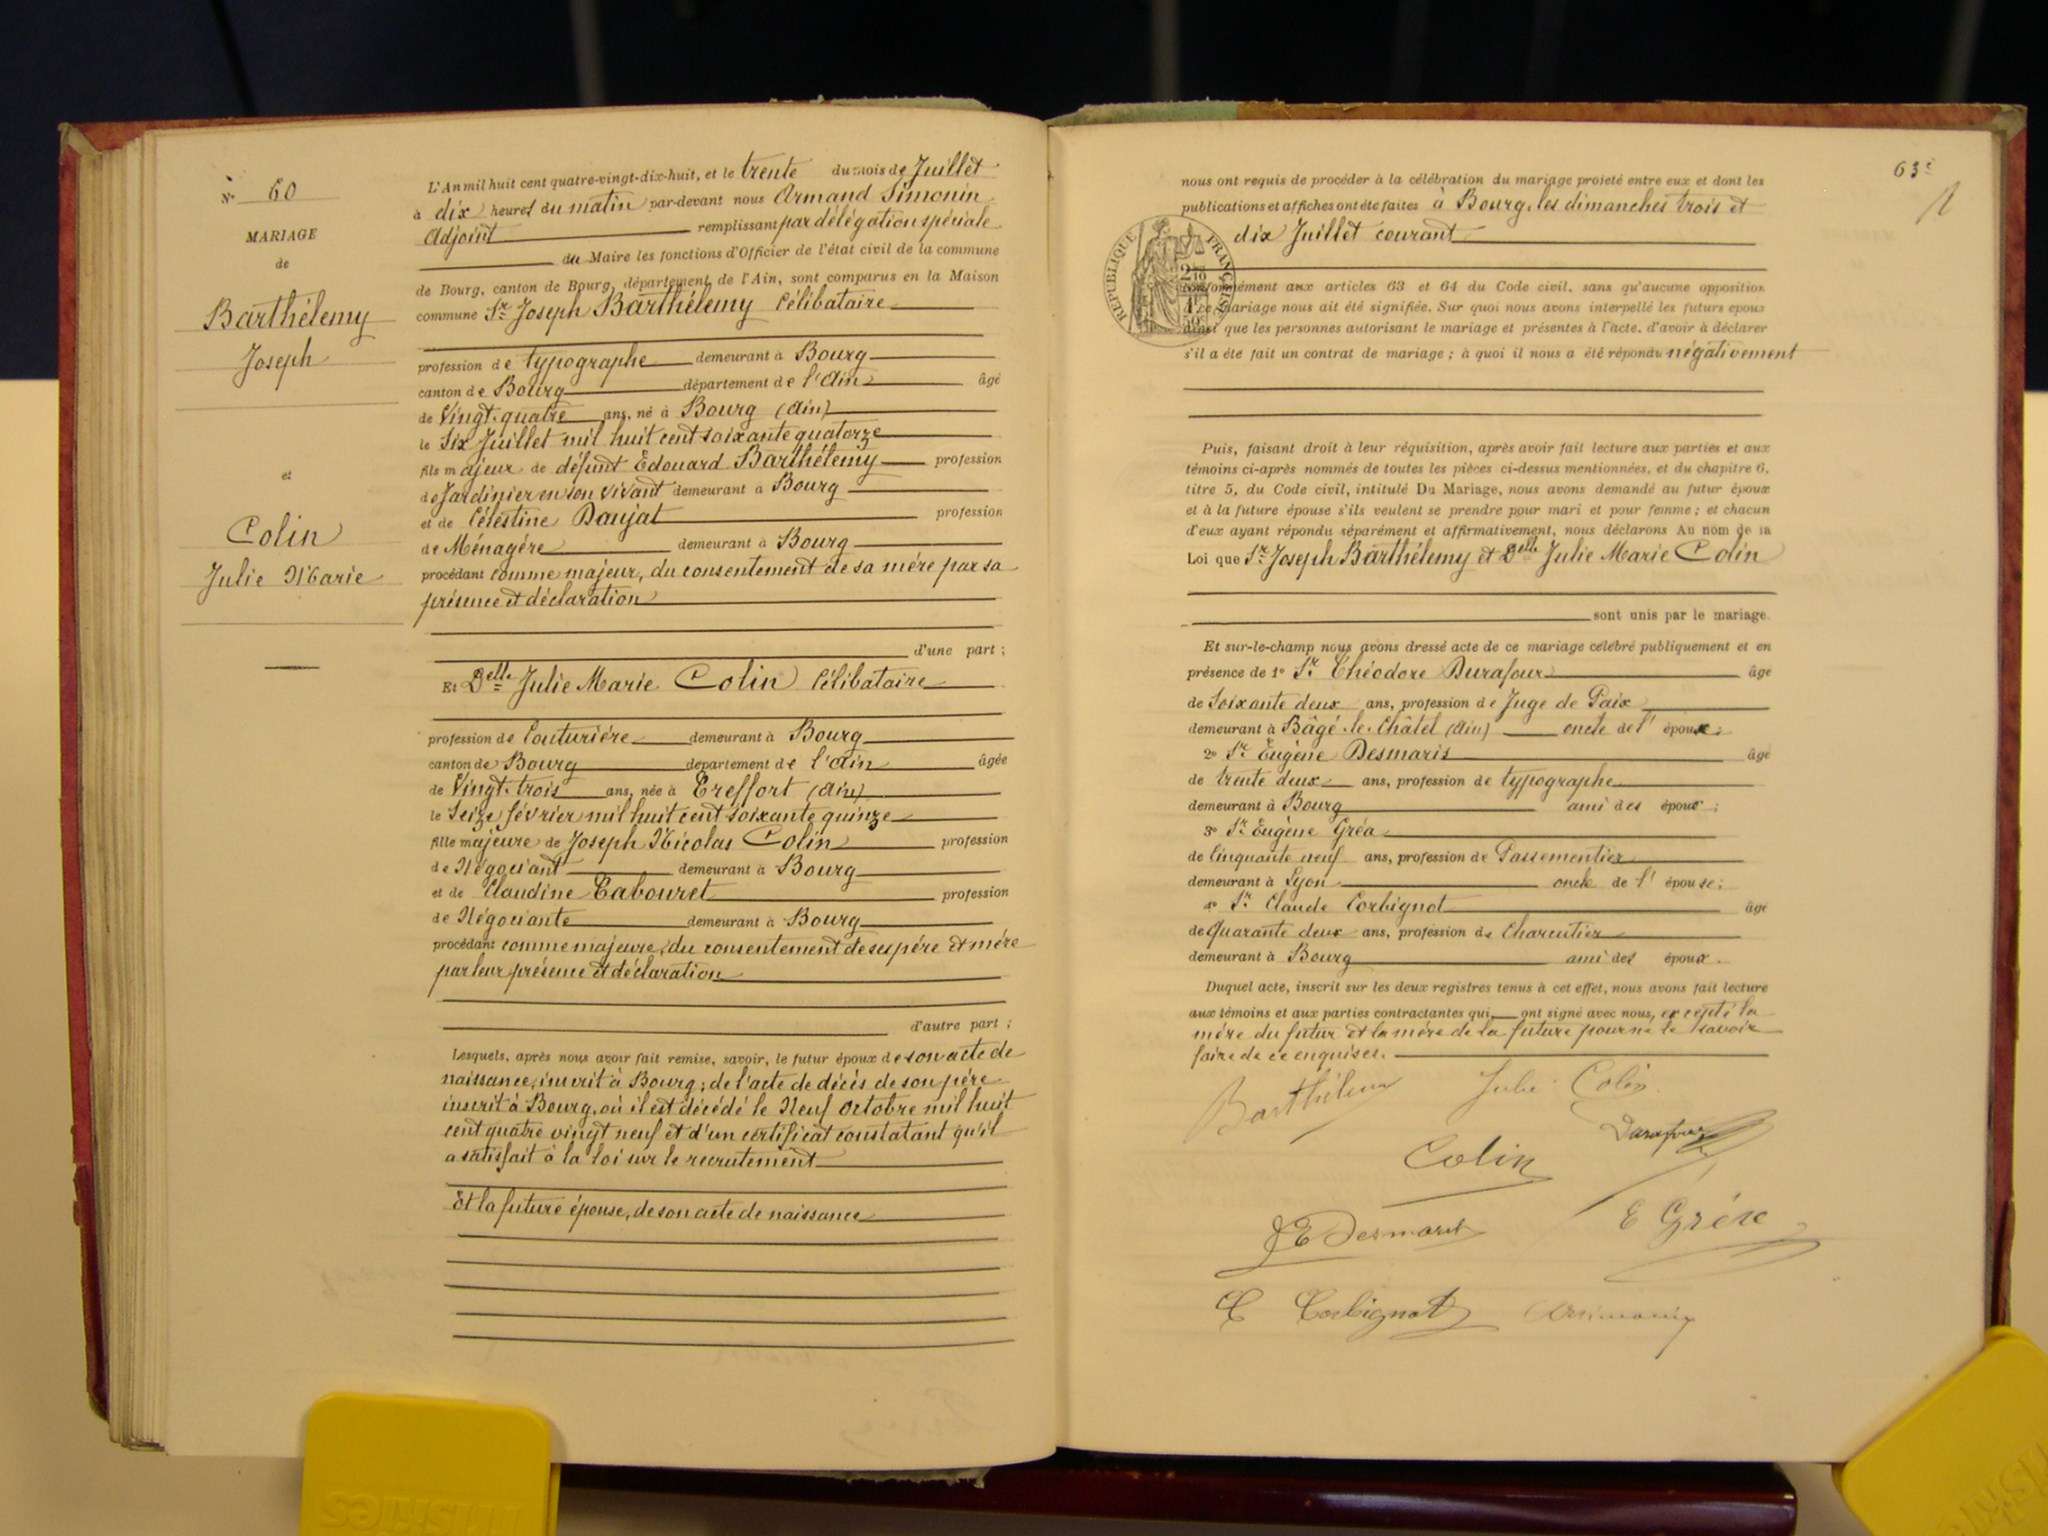 N° 60
MARIAGE
de
Barthélemy
Joseph
et
Colin
Julie Marie
L'An mil huit cent quatre-vingt-dix-huit, et le trente du mois de Juillet
à dix heures du matin par-devant nous Armand Simonin
Adjoint remplissant par délégation spéciale
du Maire les fonctions d'Officier de l'état civil de la commune
de Bourg, canton de Bourg, département de l'Ain, sont comparus en la Maison
commune Sr Joseph Barthélemy Célibataire
profession de typographe demeurant à Bourg
canton de Bourg département de l'Ain âgé
de Vingt-quatre ans, né à Bourg (Ain)
le Six Juillet mil huit cent soixante quatorze
fils majeur de défunt Edouard Barthélemy profession
de Jardinier en son vivant demeurant à Bourg
et de Célestine Daujat profession
de Ménagère demeurant à Bourg
procédant comme majeur, du consentement de sa mère par sa
présence et déclaration
d'une part ;
Et Delle Julie Marie Colin Célibataire
profession de Couturière demeurant à Bourg
canton de Bourg département de l'Ain âgée
de Vingt-trois ans, née à Treffort (Ain)
le Seize février mil huit cent soixante quinze
fille majeure de Joseph Nicolas Colin profession
de Négociant demeurant à Bourg
et de Claudine Tabouret profession
de Négociante demeurant à Bourg
procédant comme majeure, du consentement de ses père et mère
par leur présence et déclaration
d'autre part ;
Lesquels, après nous avoir fait remise, savoir, le futur époux de son acte de
naissance, inscrit à Bourg ; de l'acte de décès de son père
inscrit à Bourg, où il est décédé le Neuf Octobre mil huit
cent quatre vingt neuf et d'un certificat constatant qu'il
a satisfait à la loi sur le recrutement
Et la future épouse, de son acte de naissance
63e
nous ont requis de procéder à la célébration du mariage projeté entre eux et dont les
publications et affiches ont été faites à Bourg, les dimanches trois et
dix Juillet courant
RÉPUBLIQUE FRANÇAISE
conformément aux articles 63 et 64 du Code civil, sans qu'aucune opposition
à ce mariage nous ait été signifiée. Sur quoi nous avons interpellé les futurs époux
ainsi que les personnes autorisant le mariage et présentes à l'acte, d'avoir à déclarer
s'il a été fait un contrat de mariage ; à quoi il nous a été répondu négativement
Puis, faisant droit à leur réquisition, après avoir fait lecture aux parties et aux
témoins ci-après nommés de toutes les pièces ci-dessus mentionnées, et du chapitre 6,
titre 5, du Code civil, intitulé Du Mariage, nous avons demandé au futur époux
et à la future épouse s'ils veulent se prendre pour mari et pour femme ; et chacun
d'eux ayant répondu séparément et affirmativement, nous déclarons Au nom de la
Loi que Sr Joseph Barthélemy et Delle Julie Marie Colin
sont unis par le mariage.
Et sur-le-champ nous avons dressé acte de ce mariage célébré publiquement et en
présence de 1° Sr Théodore Durafour âgé
de Soixante deux ans, profession de Juge de Paix
demeurant à Bâgé-le-Châtel (Ain) oncle de l' époux ;
2° Sr Eugène Desmaris âgé
de trente deux ans, profession de typographe
demeurant à Bourg ami des époux ;
3° Sr Eugène Gréa
de Cinquante neuf ans, profession de Passementier
demeurant à Lyon oncle de l' épouse ;
4° Sr Claude Corbignot âgé
de Quarante deux ans, profession de Charcutier
demeurant à Bourg ami des époux.
Duquel acte, inscrit sur les deux registres tenus à cet effet, nous avons fait lecture
aux témoins et aux parties contractantes qui ont signé avec nous, excepté la
mère du futur et la mère de la future pour ne le savoir
faire de ce enquises.
Barthélemy Julie Colin
Durafour
Colin
E Desmaris E Gréa
C Corbignot Arsimonin